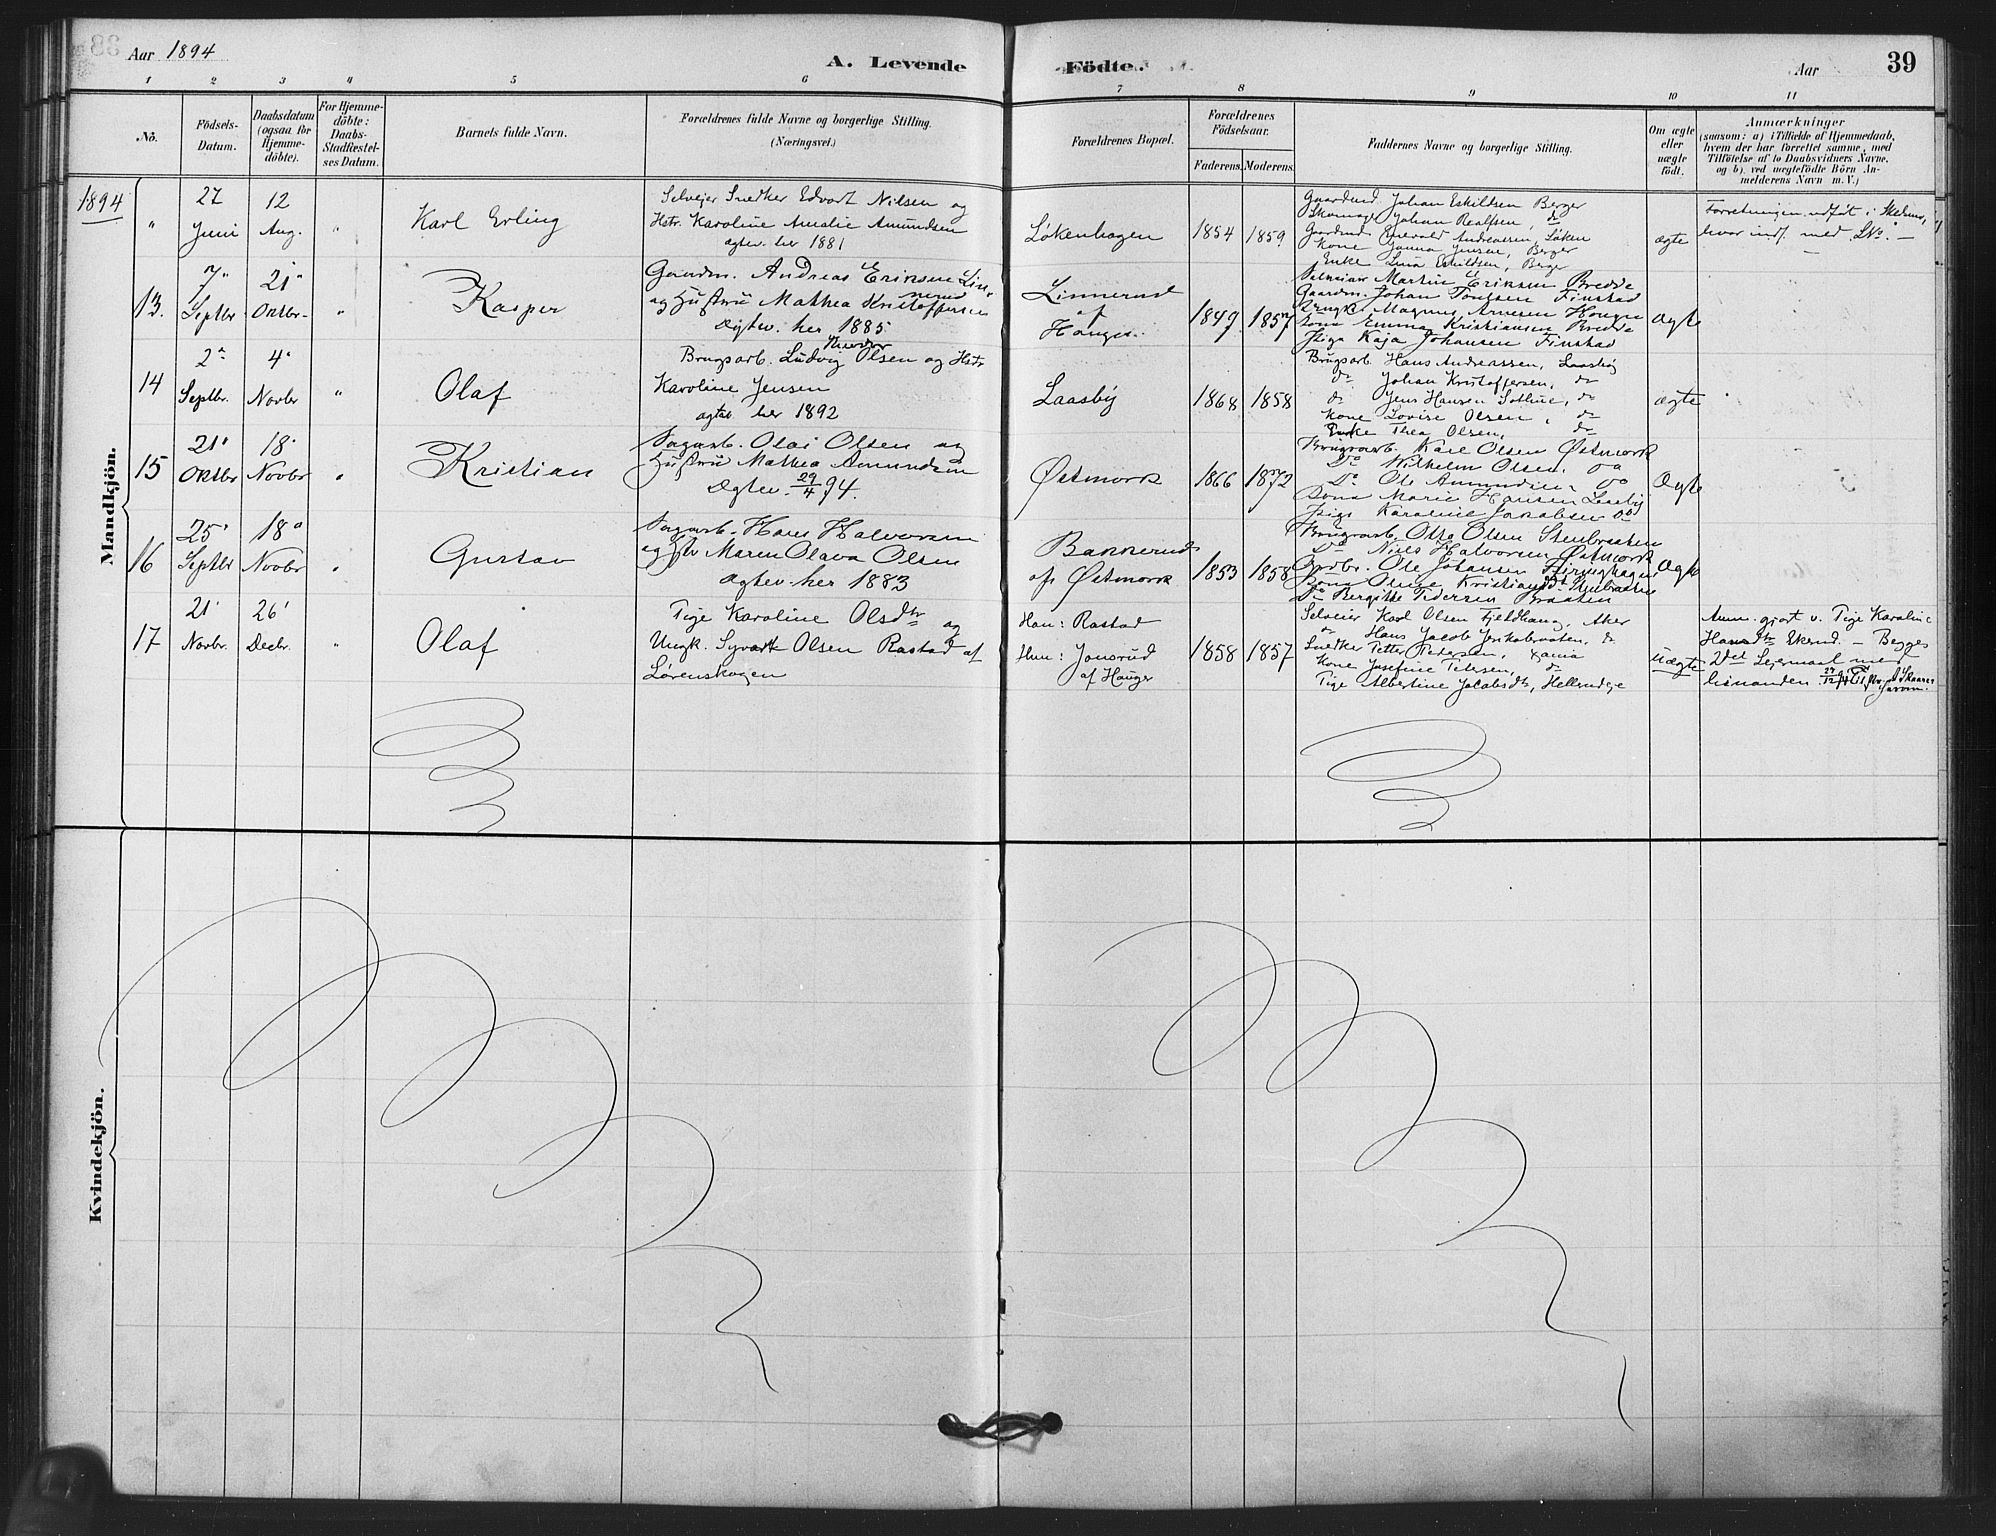 Aar 1894
A. Levende Födte.
Aar
39
1 2 3 4 5 6 7 8 9 10 11
No.
Födsels-
Datum.
Daabsdatum
(ogsaa for
Hjemme-
döbte).
For Hjemme-
döbte:
Daabs-
Stadfæstel-
ses Datum.
Barnets fulde Navn.
Forældrenes fulde Navne og borgerlige Stilling.
(Næringsvei.)
Forældrenes Bopæl.
Forældrenes
Födselsaar.
Faderens. Moderens.
Faddernes Navne og borgerlige Stilling.
Om ægte
eller
uægte
födt.
Anmærkninger
(saasom: a) i Tilfælde af Hjemmedaab,
hvem der har forrettet samme, med
Tilföielse af to Daabsvidners Navne,
og b) ved uægtefödte Börn An-
melderens Navn m. V.)
Mandkjön.
1894
"
27
Juni
12
Aug.
"
Karl Erling
Selvejer Snedker Edvart Nilsen og
Hstr. Karoline Amalie Amundsen
ægtev. her 1881
Løkenhagen
1854
1859
Gaardmd. Johan Eskiltsen Berger
Skomag. Johan Realfsen, do
Gaardmd. Enevald Andreassen, Løken
Kone Janna Jensen, Berger
Enke Lina Eskildsen, Berger
ægte
Forretningen udført i Skedsmo,
hvor indf. med LNo. —
13.
7"
Septbr
21"
Oktbr-
"
Kasper
Gaardm. Andreas Eriksen Lin-
nerud
og Hustru Mathea Kristoffersen
Ægtev. her 1885
Linnerud
af
Hauger.
1849
1857
Martin Eriksen Bredde
Gaardm. Johan Poulsen Finstad
Ungk. Magnus Arnesen Hauger
Kona Emma Kristiansen Bredde
Pige Kaja Johansen Finstad
Ægte
14
2"
Septbr.
4"
Novbr
"
Olaf
Brugsarb. Ludvig Olsen og Hstr
Karoline Jensen
ægtev her 1892
Laasby
1868
1858
Brugsarb. Hans Andreassen, Laasby
do Johan Kristoffersen, do
do Jens Hansen do
Kone Lovise Olsen, do
Enke Thea Olsen, do
ægte
15
21'
Oktbr
18'
Novbr
"
Kristian
Sagarb. Olai Olsen og
Hustru Mathea Amundsen
Ægtev. 29/4 94.
Østmork
1866
1872
Brugsarb. Karl Olsen Østmork
Do Wilhelm Olsen, do
Do Ole Amundsen, do
Kona Marie Hansen Laasby
Pige Karoline Jakobsen do
Ægte
16
25'
Septbr
18"
Novbr
"
Gustav
Sagarb. Hans Halvorsen
og Hstr Maren Olava Olsen
Ægtev. her 1883
Bakkerud
af Østmork
1853
1858
Brugsarb. Otto Olsen Stenbraaten
Do Niels Halvorsen Østmork
Grdbr. Ole Johansen
Kona Oline Kristians Dt Stenbraaten
Do Bergitte Pedersen Braaten
Ægte
17
21'
Novbr.
26'
Decbr.
"
Olaf
Pige Karoline Olsdtr og
Ungk. Syvart Olsen Rastad af
Lørenskogen
Han: Rastad
Hun: Jonsrud
af Hauger
1858
1857
Selveier Karl Olsen Fjeldhaug, Aker
do Hans Jacob Jerikobraaten, do
Snedker Petter Pedersen, Xania
Kone Josefine Petersen, do
Pige Albertine Jacobsdtr, Hellerudeje
Uægte
Anm. gjort v. Pige Karoline
Hansdtr Ekerud. — Begges
2det Leiermaal med
hinanden
Kvindekjön.